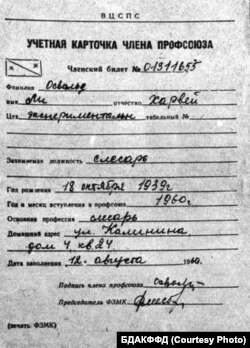 ВЦСПС
УЧЕТНАЯ КАРТОЧКА ЧЛЕНА ПРОФСОЮЗА
Членский билет № 01311655
Фамилия Освальд
имя Ли отчество Харвей
Цех экспериментальн табельный №
Занимаемая должность слесарь
Год рождения 18 октября 1939г
Год и месяц вступления в профсоюз 1960г.
Основная профессия слесарь
Домашний адрес ул. Калинина
дом 4, кв. 24
Дата заполнения 12 августа 1960г.
Подпись члена профсоюза
Председатель ФЗМК
(печать ФЗМК)
БДАКФФД (Courtesy Photo)